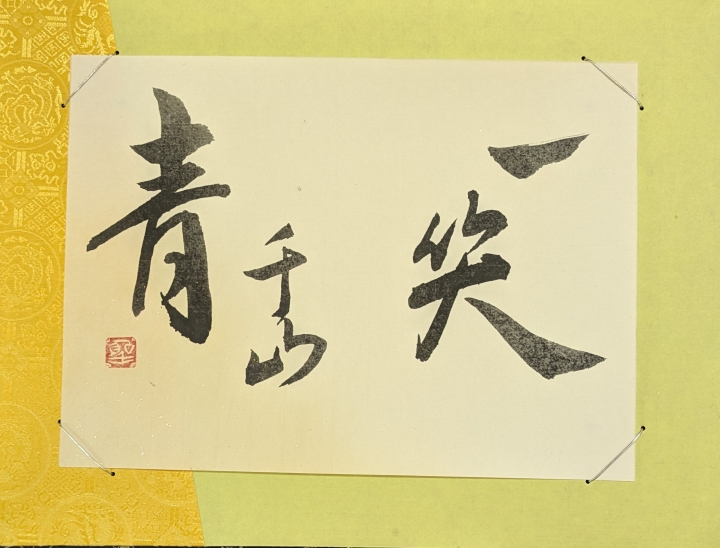 一笑
千山
青